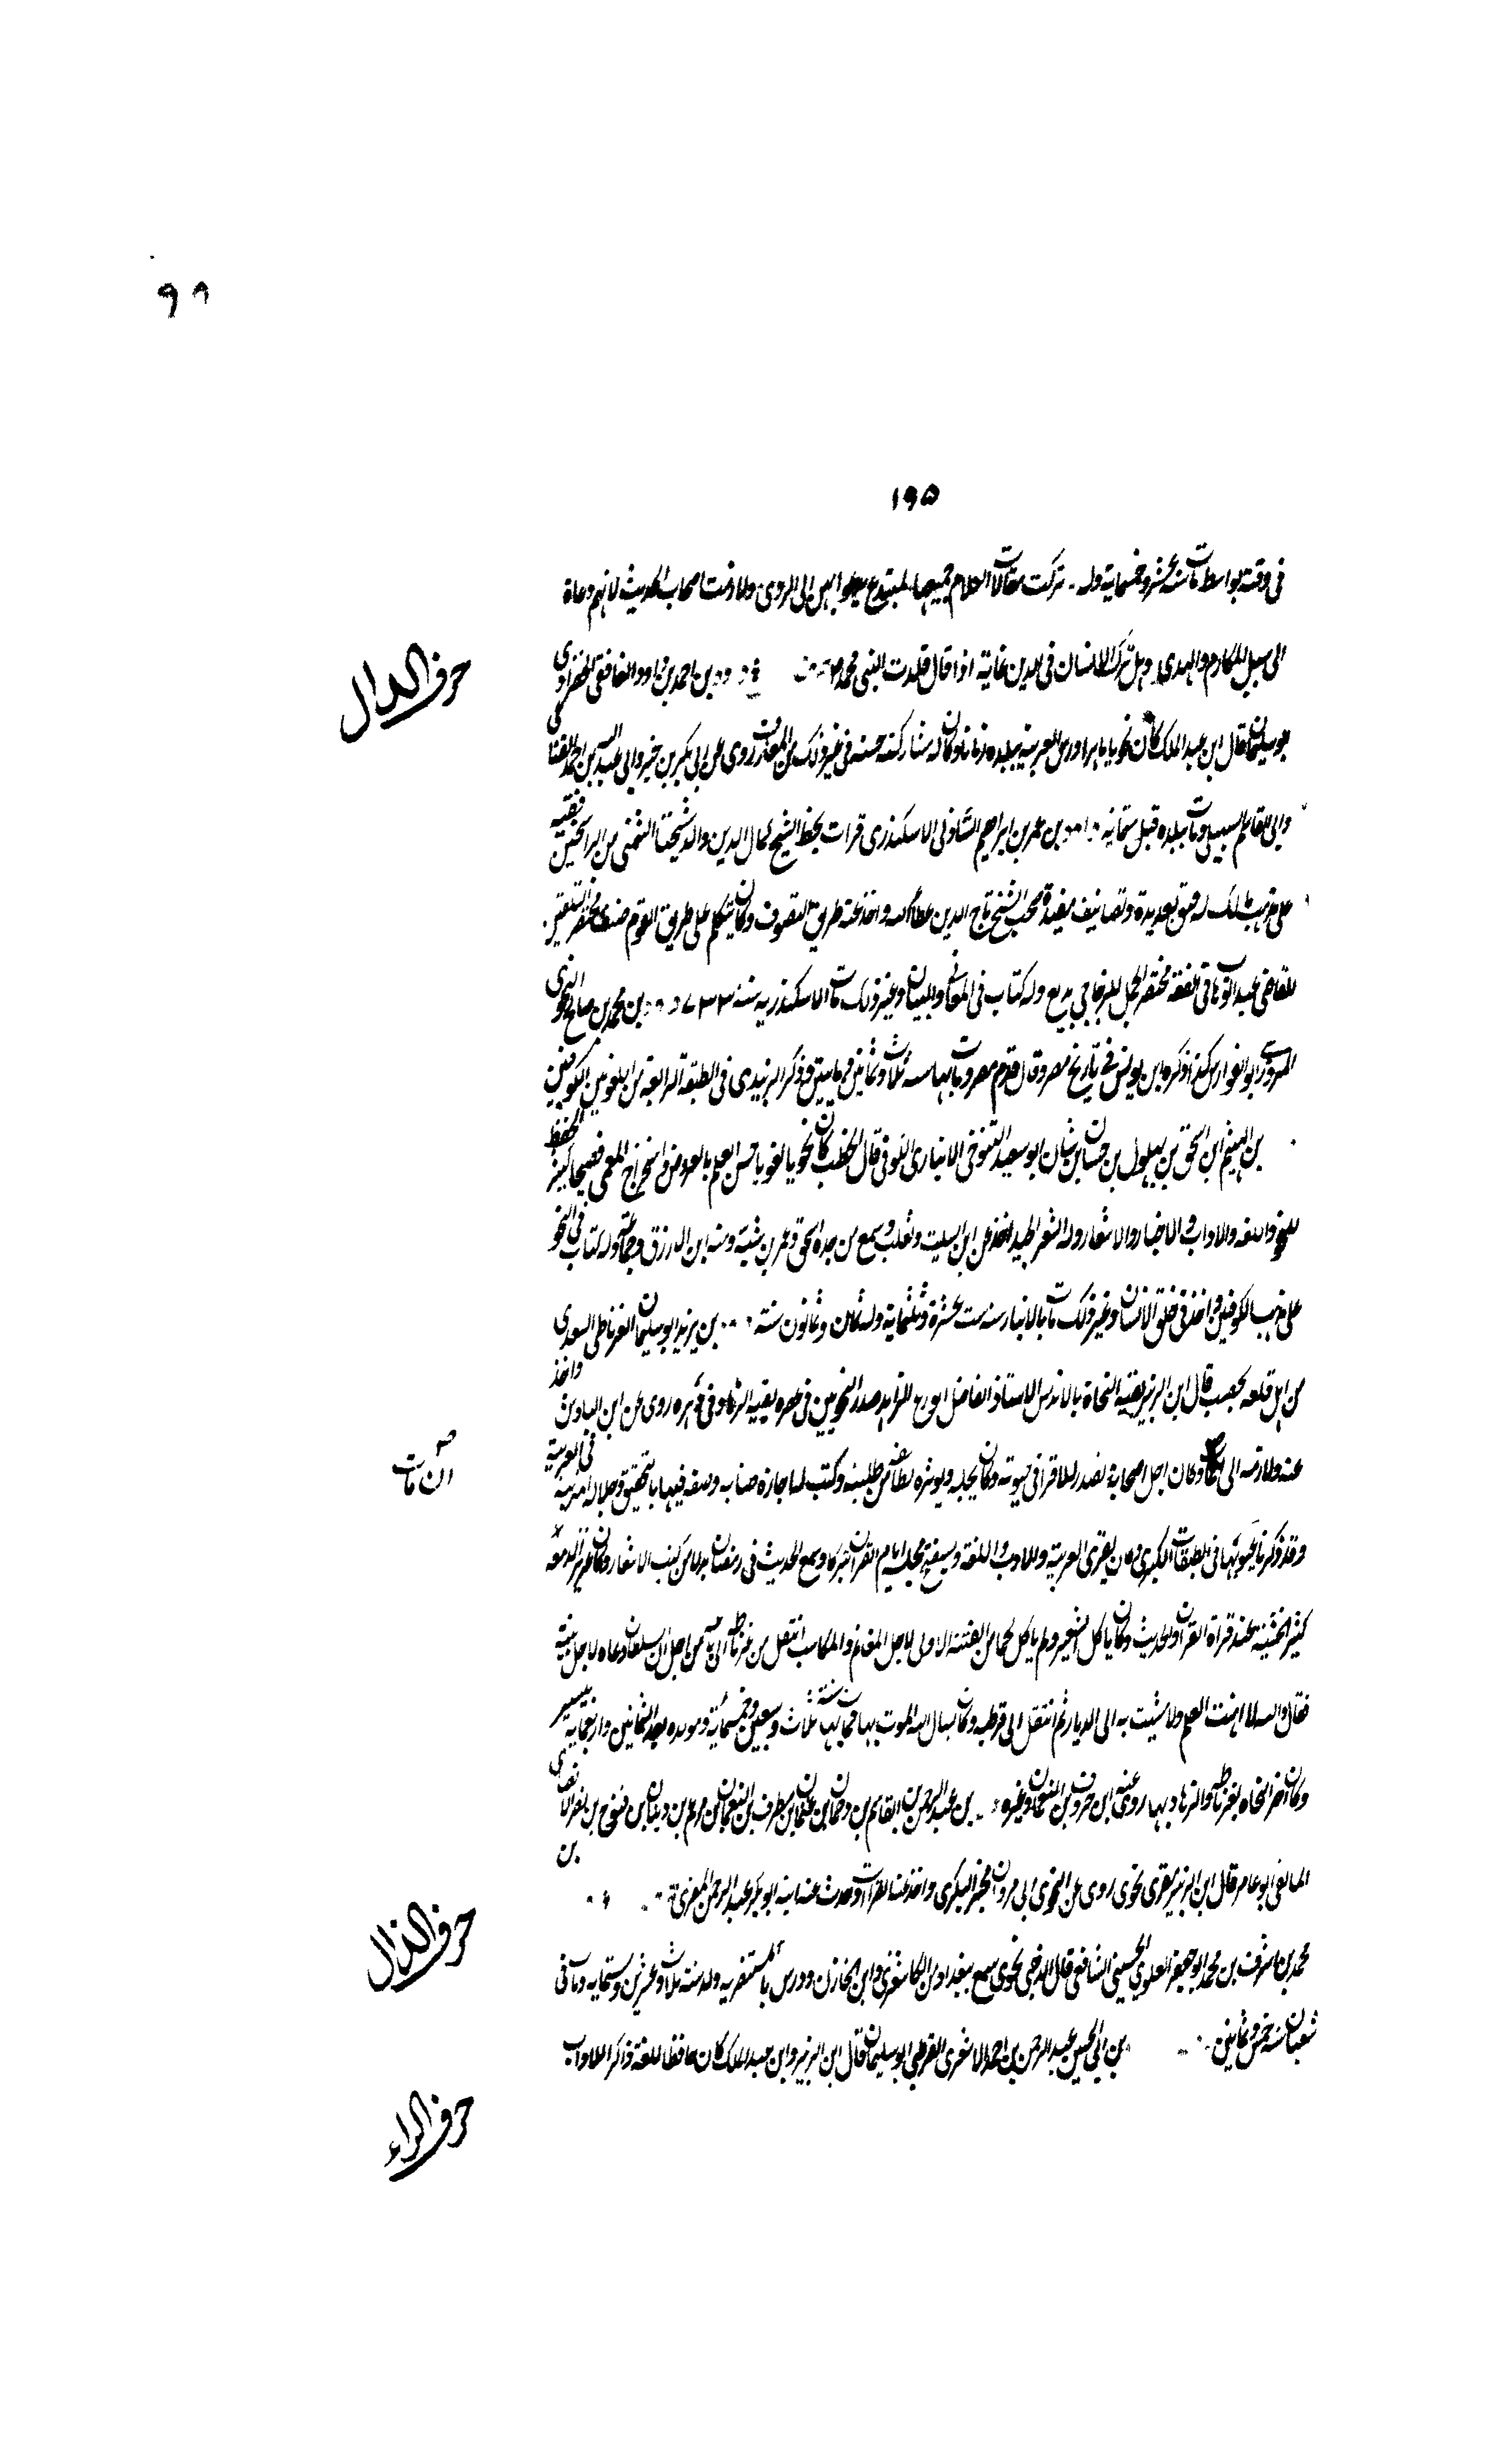 ٩٨
١٩٥
فى وقته بواسط مات سنة عشر وخمسماية وله تركت مقالات الكلام جميعها لمبتدع يدعو بهن الى الردى ولازمت اصحاب الحديث لانهم دعاة
الى سبل المكارم والهدى وهل ترك الانسان فى الدين غاية اذا قال قلدت النبى محمدا بن احمد بن داود الغافقى الخضراوى
حرف الدال
ابو سليمان قال ابن عبد الملك كان نحويا ماهرا ودرس العربية ببلده زمانا وكان له مشاركة حسنة فى غير ذلك من المعارف روى عن ابى بكر بن خير وابى عبد الله بن احمد
وابى القاسم السهيلى ومات ببلده قبل ستماية بن عمر بن ابراهيم الشاذلى الاسكندرى قرات بخط الشيخ كمال الدين والد شيخنا الشمنى من الراسخين فقيه
على مذهب مالك له فنون عديدة وتصانيف مفيدة صحب الشيخ تاج الدين بن عطاء الله واخذ عنه طريق التصوف وكان يتكلم على طريق القوم صنف مختصر التلقين
للقاضى عبد الوهاب فى الفقه مختصر الجمل للزجاجى بديع وله كتاب فى المعانى والبيان وغير ذلك مات بالاسكندرية سنة ٧٣٣ بن محمد بن صالح النحوى
المروزى ابو الفوارس كذا ذكره ابن يونس فى تاريخ مصر وقال قدم مصر ومات بها سنة ثلاث وثمانين ومايتين وذكر الزبيدى فى الطبقة الرابعة من اللغويين الكوفيين
بن الهيثم ابن اسحق بن بهلول بن حسان بن سنان ابو سعيد التنوخى الانبارى اللغوى قال الخطيب كان نحويا لغويا حسن العلم بالعروض واستخراج المعمى فصيحا كثير الحفظ
للنحو واللغة والاداب والاخبار والاشعار وله الشعر الجيد اخذ عن ابن السكيت وثعلب وسمع من جده اسحق وعمر بن شبة ومنه ابن الازرق وجماعة وله كتاب فى النحو
على مذهب الكوفيين واخر فى خلق الانسان وغير ذلك مات بالانبار سنة ست عشرة وثلثماية وله ثمان وثمانون سنة بن يزيد ابو سليمان الغرناطى السعدى
من اهل قلعة يحصب قال ابن الزبير بقية النحاة بالاندلس الاستاذ الفاضل الورع الزاهد صدر النحويين فى عصره بقية الزهاد فى دهره روى عن ابن الباذش واخذ
عنه ولازمه الى ان مات وكان اجل اصحابه تصدر للاقراء فى حيوته وكان يجله ويوثره بطائفة من طلبته وكتب له اجازة وصفه فيها بالتحقيق وجلالة المرتبة فى العربية
ان مات صح
وقد ذكرناها فى الطبقات الكبرى وكان يقرى العربية والادب واللغة ايام القران تبركا وسمع الحديث فى رمضان بدلا من كتب الاشعار وكان غزير الدمعة
كثير الخشية عند قراة القران والحديث وكان ياكل الشعير ولم ياكل لحما من الفتنة الاولى لاجل المغانم والمكاسب انتقل من غرناطة الى من اجل ان سلطان دعاه لاجل بنيه
فقال والله لا اهنت العلم ولا مشيت به الى الديار ثم انتقل الى قرطبة وكان يسال الله الموت بها فمات بها سنة ثلاث وسبعين وخمسمائة ومولده بعد الثمانين واربعماية بيسير
وكان اخر النحاة بغرناطة والزهاد بها روى عنه ابن خروف وغيره بن عبد الرحمن بن القاسم بن بن عثمان بن مطرف بن النعمان بن بن فتوح بن نصر الانصارى
المالقى ابو عامر قال ابن الزبير مقرى نحوى روى عن النحوى ابى مروان بن مجير البكرى واخذ عنه القراات وحدث عنه ابنه ابو بكر عبد الرحمن المغربى
حرف الذال
محمد بن اشرف بن محمد ابو جعفر العلوى الحسينى الشافعى قال الذهبى نحوى سمع ببغداد من الكاشغرى وابن الخازن ودرس بالمستنصرية ولد سنة ثلاث وعشرين وستماية ومات فى
شعبان سنة خمس وثمانين بن ابى الحسين عبد الرحمن بن احمد الاشعرى القرطبى ابو سليمان قال ابن الزبير وابن عبد الملك كان حافظا للغة ذاكرا للاداب
حرف الراء